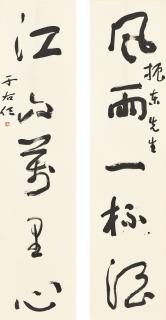 振東先生
風雨一杯酒
江山萬里心
于右任